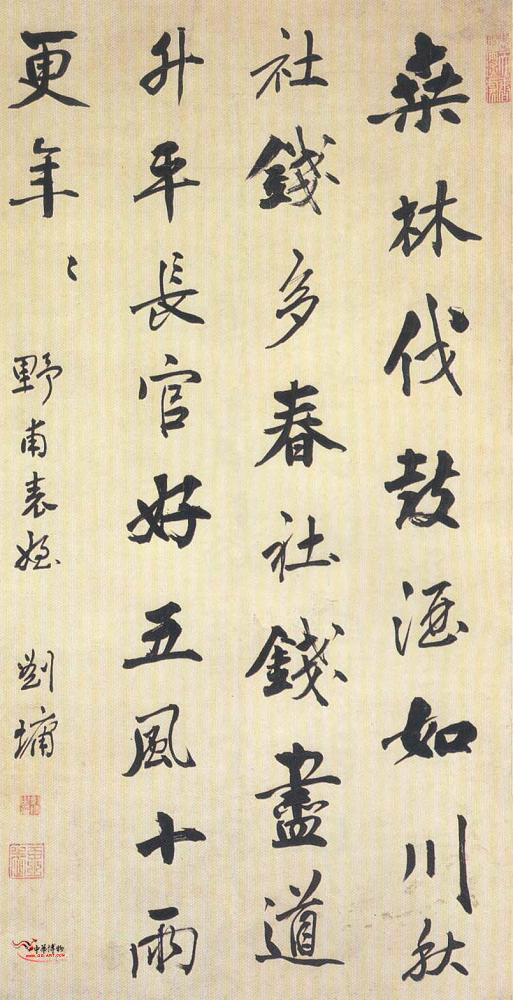 桑林伐鼓酒如川秋
社錢多春社錢盡道
升平長官好五風十雨
更年〻 野甫表姪 劉墉
中華博物